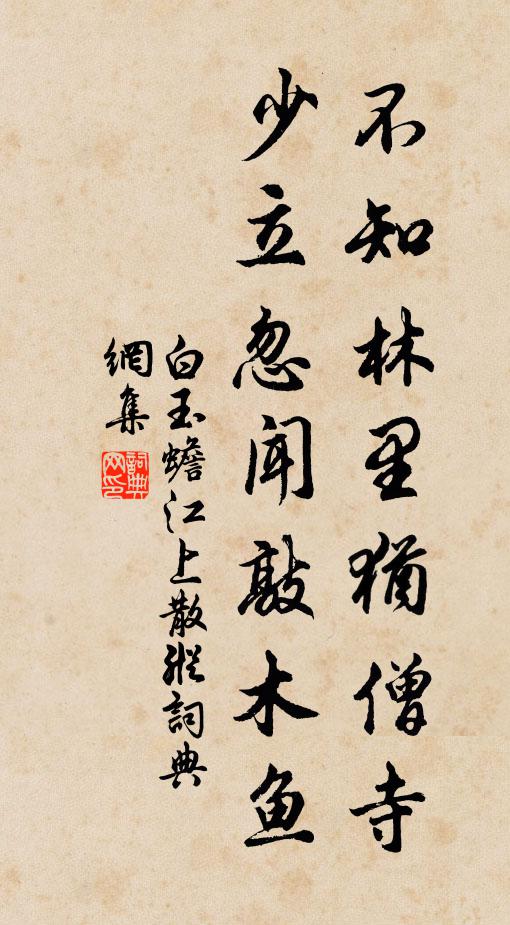 不知林里犹僧寺
少立忽闻敲木鱼
白玉蟾江上散
網集
詞典网印